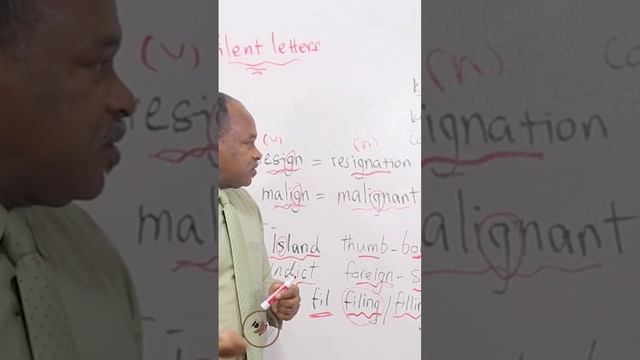 ilent letters
(v) (n)
esign = resignation
malign = malignant
Island thumb - bo
ndict foreign - s
fil filing / fillin